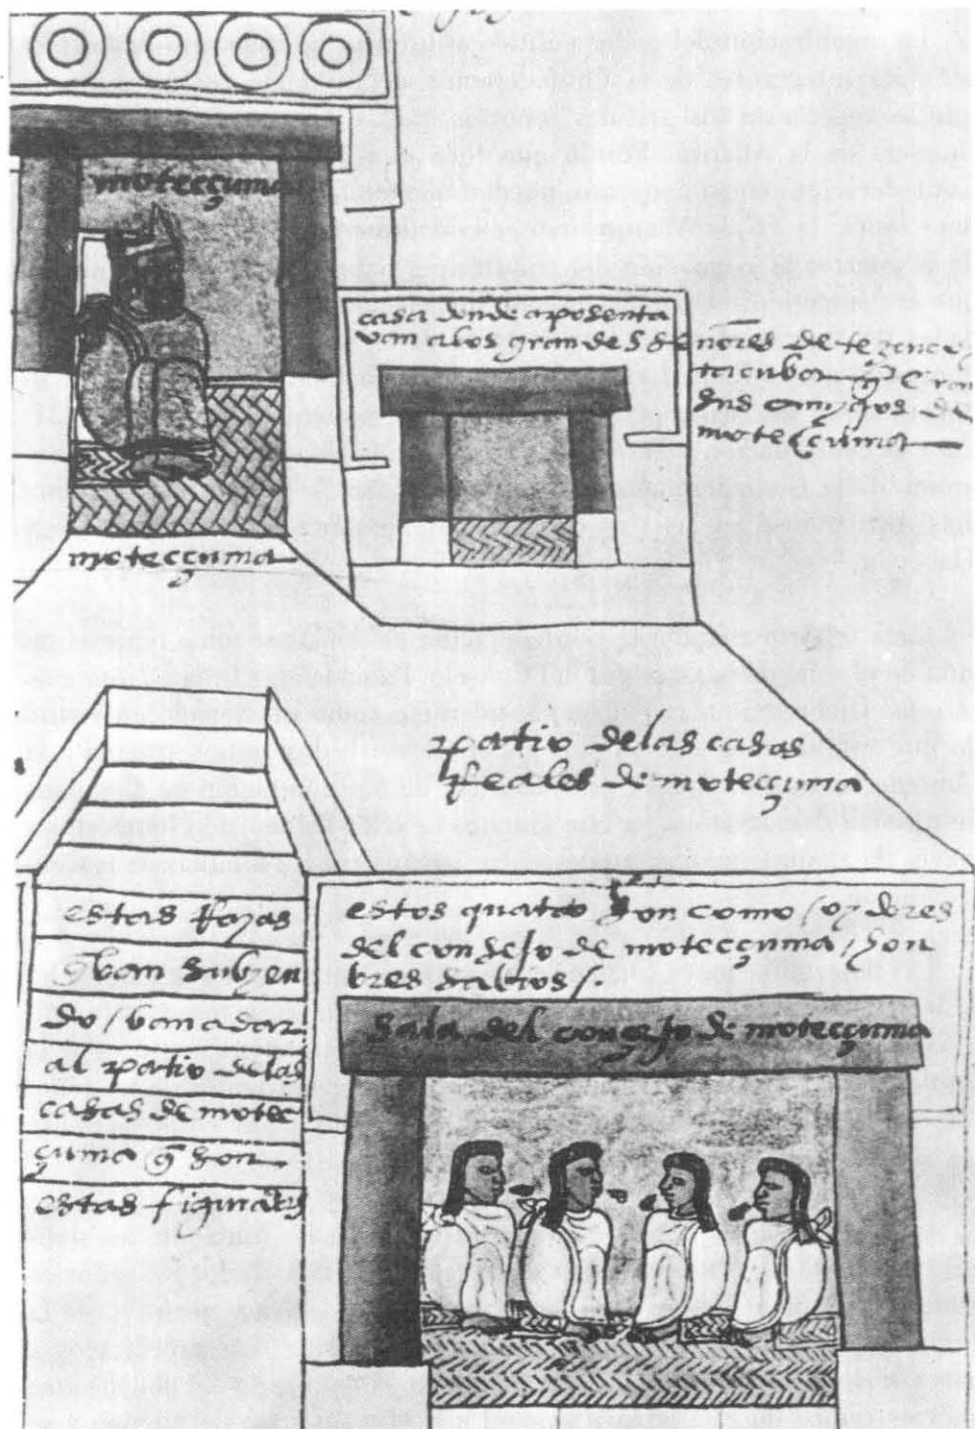 moteccuma
casa donde aposenta
van a los grandes señores de tezcuco
tacuba q̄ eran
sus amigos de
moteccuma
moteccuma
patio de las casas
Reales de moteccuma
estas Rayas
q̄ van subien
do / van a dar
al patio de las
casas de motec
çuma q̄ son
estas figuras
estos quatro son como / oydores
del consejo de moteccuma / hon
bres sabios /.
Sala del consejo de moteccuma